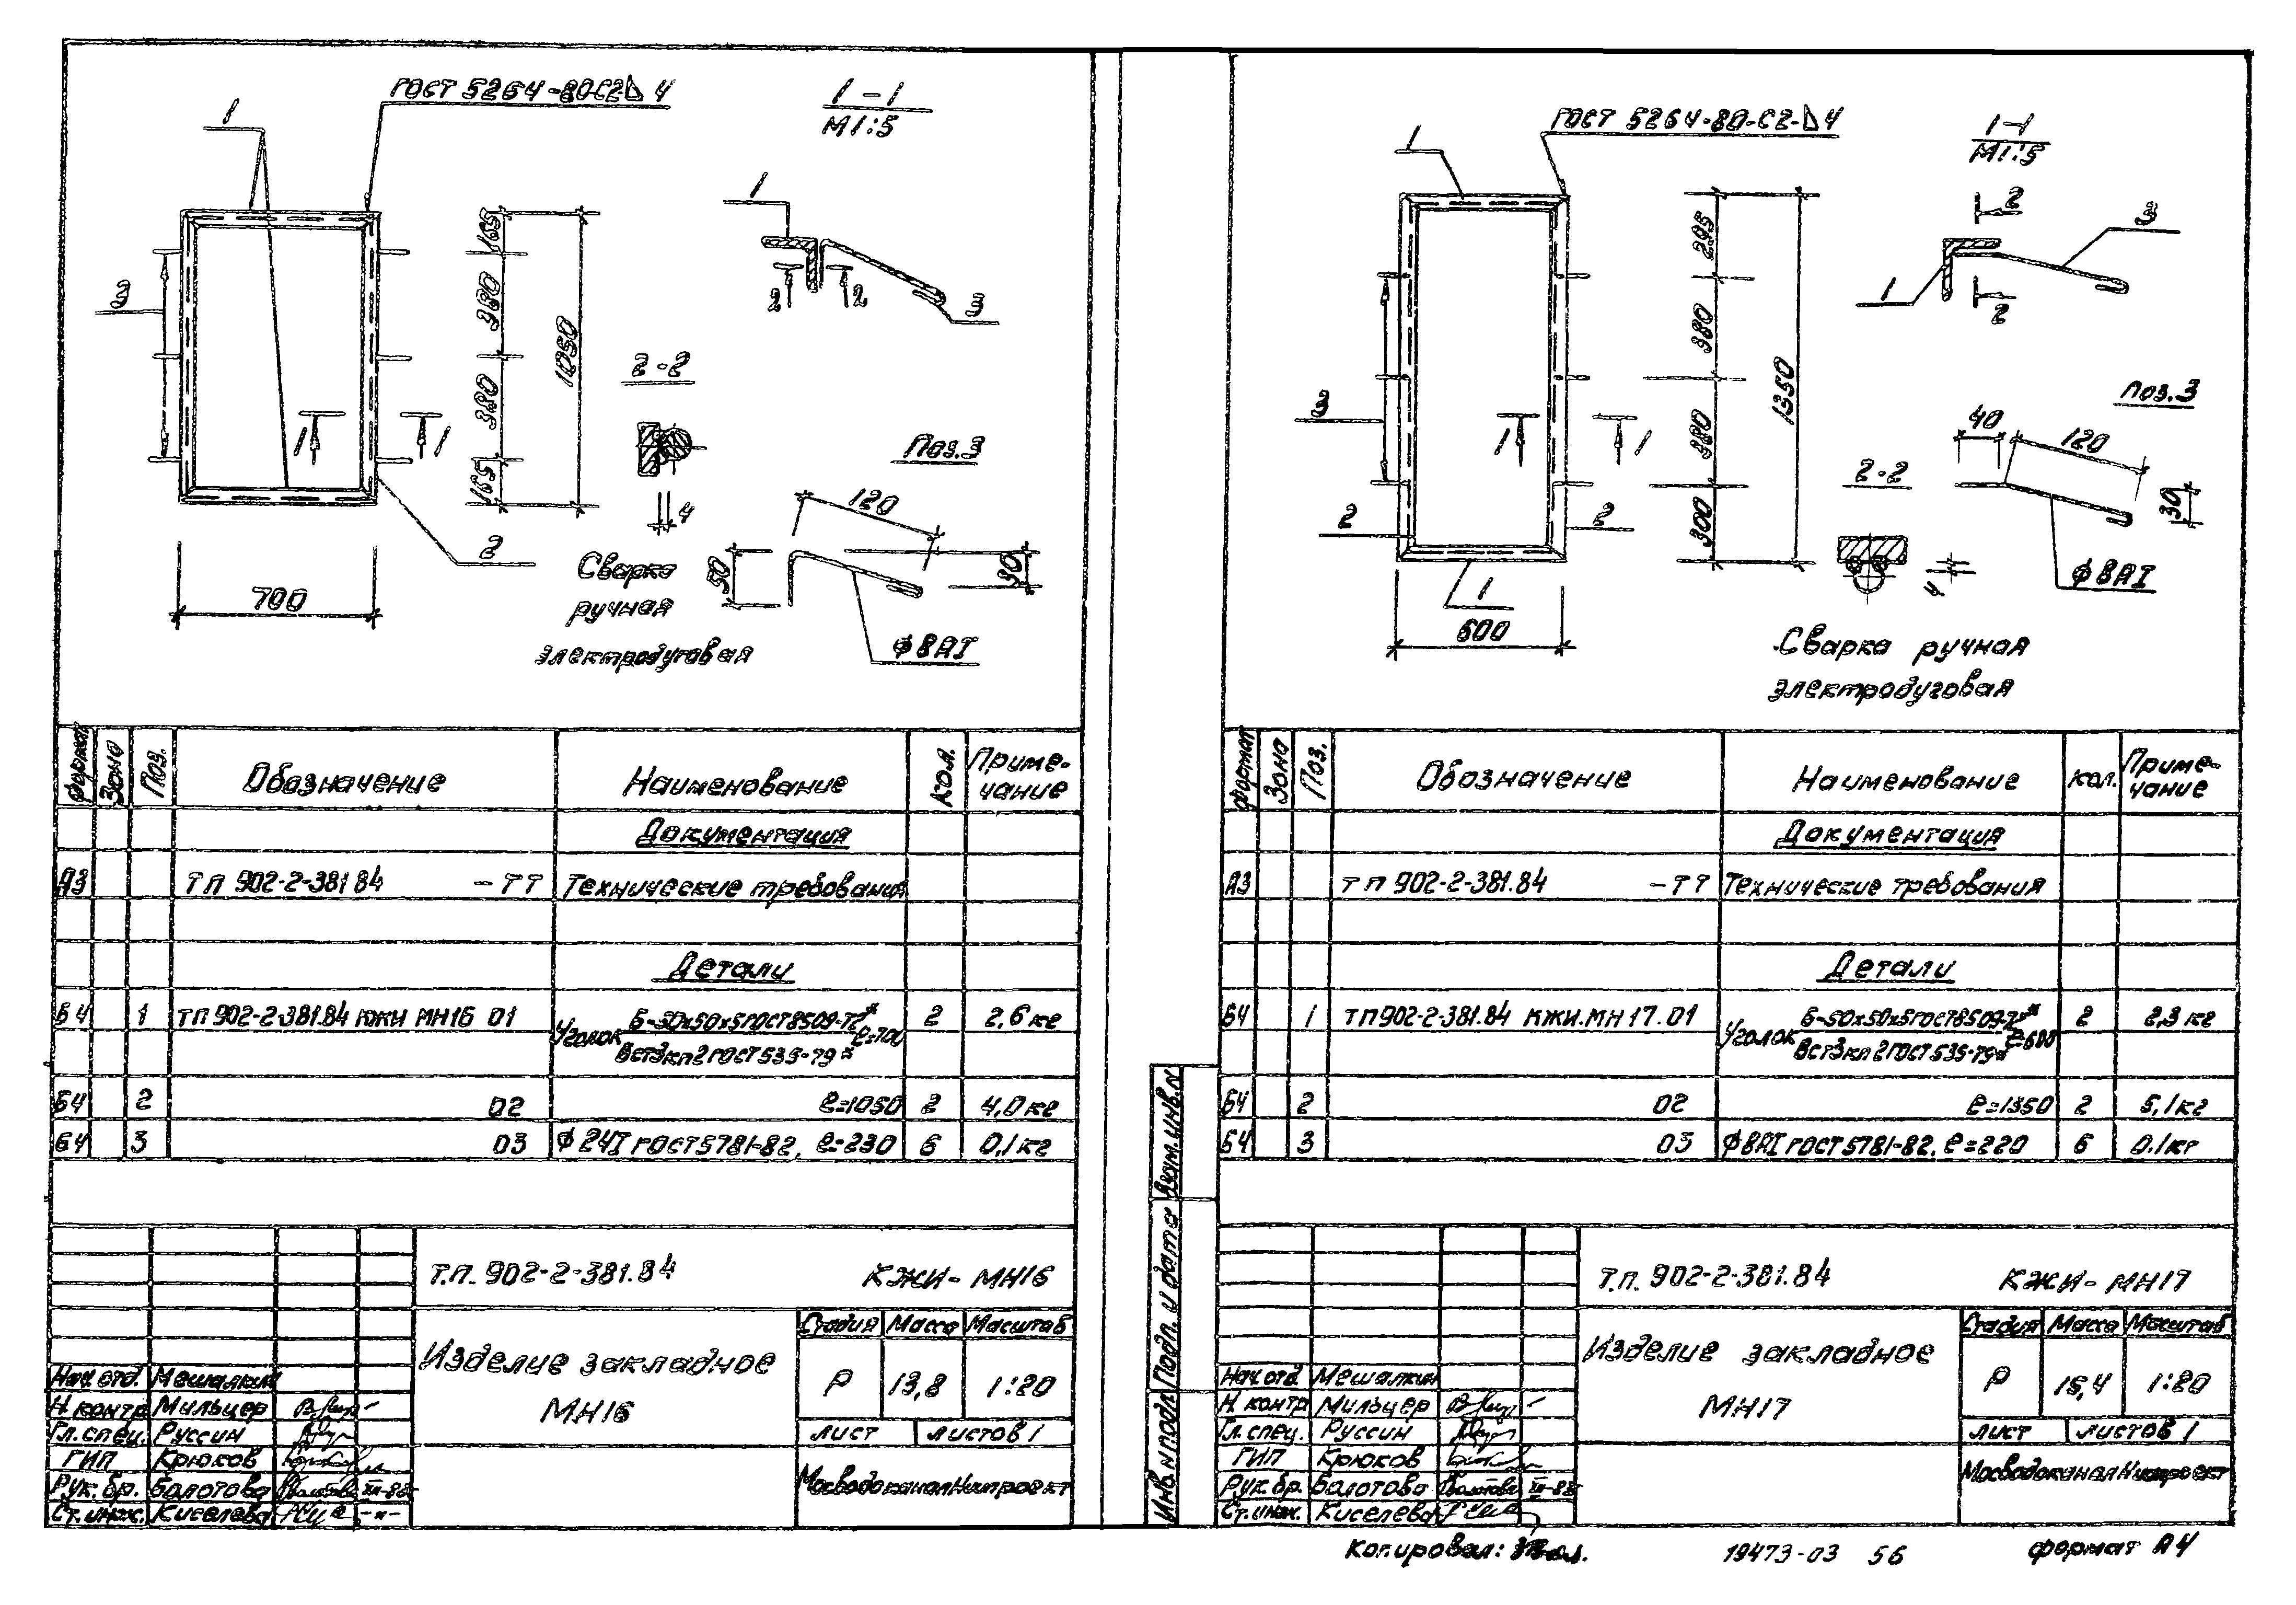 ГОСТ 5264-80-С2-◺ 4
1
1-1
М1:5
1
3
165
380
380
165
1050
2
2
3
2-2
1
1
4
Поз.3
120
50
30
2
700
Сварка
ручная
электродуговая
ф 8АI
Формат
Зона
Поз.
Обозначение
Наименование
Кол.
Приме-
чание
Документация
А3 ТП 902-2-381 84 -ТТ Технические требования
Детали
Б4 1 ТП 902-2-381.84 КЖИ МН16 01 Уголок Б-50х50х5 ГОСТ 8509-72* ℓ=700 2 2,6 кг
ВСт3кп2 ГОСТ 535-79*
Б4 2 02 ℓ=1050 2 4,0 кг
Б4 3 03 ф 24I ГОСТ 5781-82, ℓ=230 6 0,1 кг
Т.П. 902-2-381.84 КЖИ- МН16
Изделие закладное
МН16
Стадия Масса Масштаб
Р 13,8 1:20
Лист Листов 1
МосводоканалНИИпроект
Нач. отд. Мешалкин
Н. контр Мильцер
Гл. спец. Руссин
ГИП Крюков
Рук. бр. Болотова
Ст. инж. Киселева
ГОСТ 5264-80-С2-◺ 4
1
1-1
М1:5
2
3
1
2
295
380
380
300
1350
3
1
1
2
2
1
600
Поз.3
40
120
30
2-2
4
ф 8АI
Сварка ручная
электродуговая
Формат
Зона
Поз.
Обозначение
Наименование
Кол.
Приме-
чание
Документация
А3 ТП 902-2-381.84 -ТТ Технические требования
Детали
Б4 1 ТП 902-2-381.84 КЖИ.МН17.01 Уголок Б-50х50х5 ГОСТ 8509-72* ℓ=600 2 2,3 кг
ВСт3кп2 ГОСТ 535-79*
Б4 2 02 ℓ=1350 2 5,1 кг
Б4 3 03 ф 8АI ГОСТ 5781-82, ℓ=220 6 0.1 кг
Т.П. 902-2-381.84 КЖИ- МН17
Изделие закладное
МН17
Стадия Масса Масштаб
Р 15,4 1:20
Лист Листов 1
МосводоканалНИИпроект
Нач. отд Мешалкин
Н контр Мильцер
Гл. спец. Руссин
ГИП Крюков
Рук. бр. Болотова
Ст. инж. Киселева
Взам. инв. №
Подп. и дата
Инв. № подл.
Копировал:
19473-03 56
формат А4